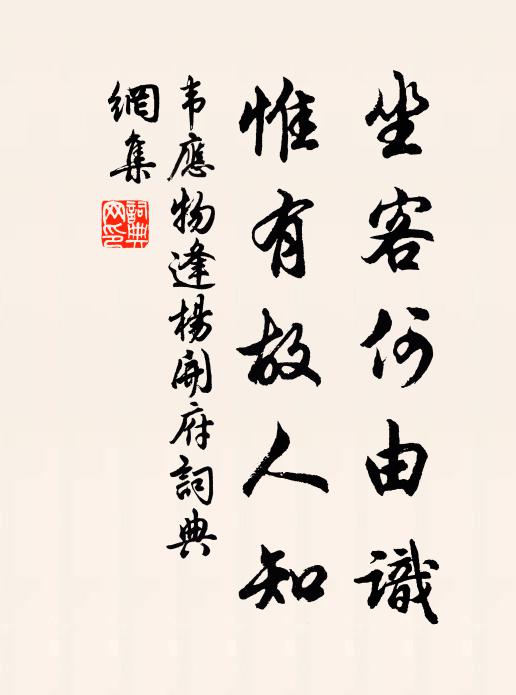 坐客何由識
惟有故人知
韦應物逢楊開府詞典
網集
詞典
网印